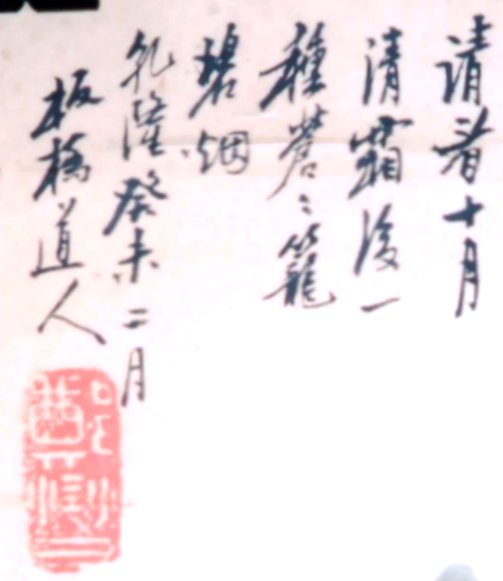 请看十月
清霜後一
種蒼〻籠
碧烟
乾隆癸未二月
板橋道人